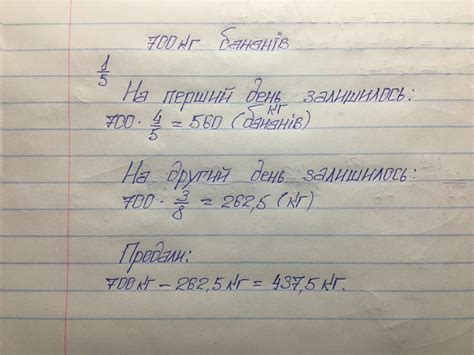 700 кг бананів
1/5
На перший день залишилось:
700 · 4/5 = 560 (кг бананів)
На другий день залишилось:
700 · 3/8 = 262,5 (кг)
Продали:
700 кг - 262,5 кг = 437,5 кг.